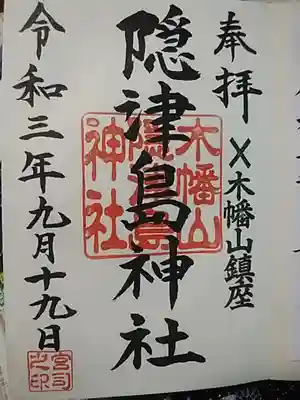 奉拝
×木幡山鎮座
隠津島神社
木幡山
隠津島
神社
令和三年九月十九日
宮司
之印